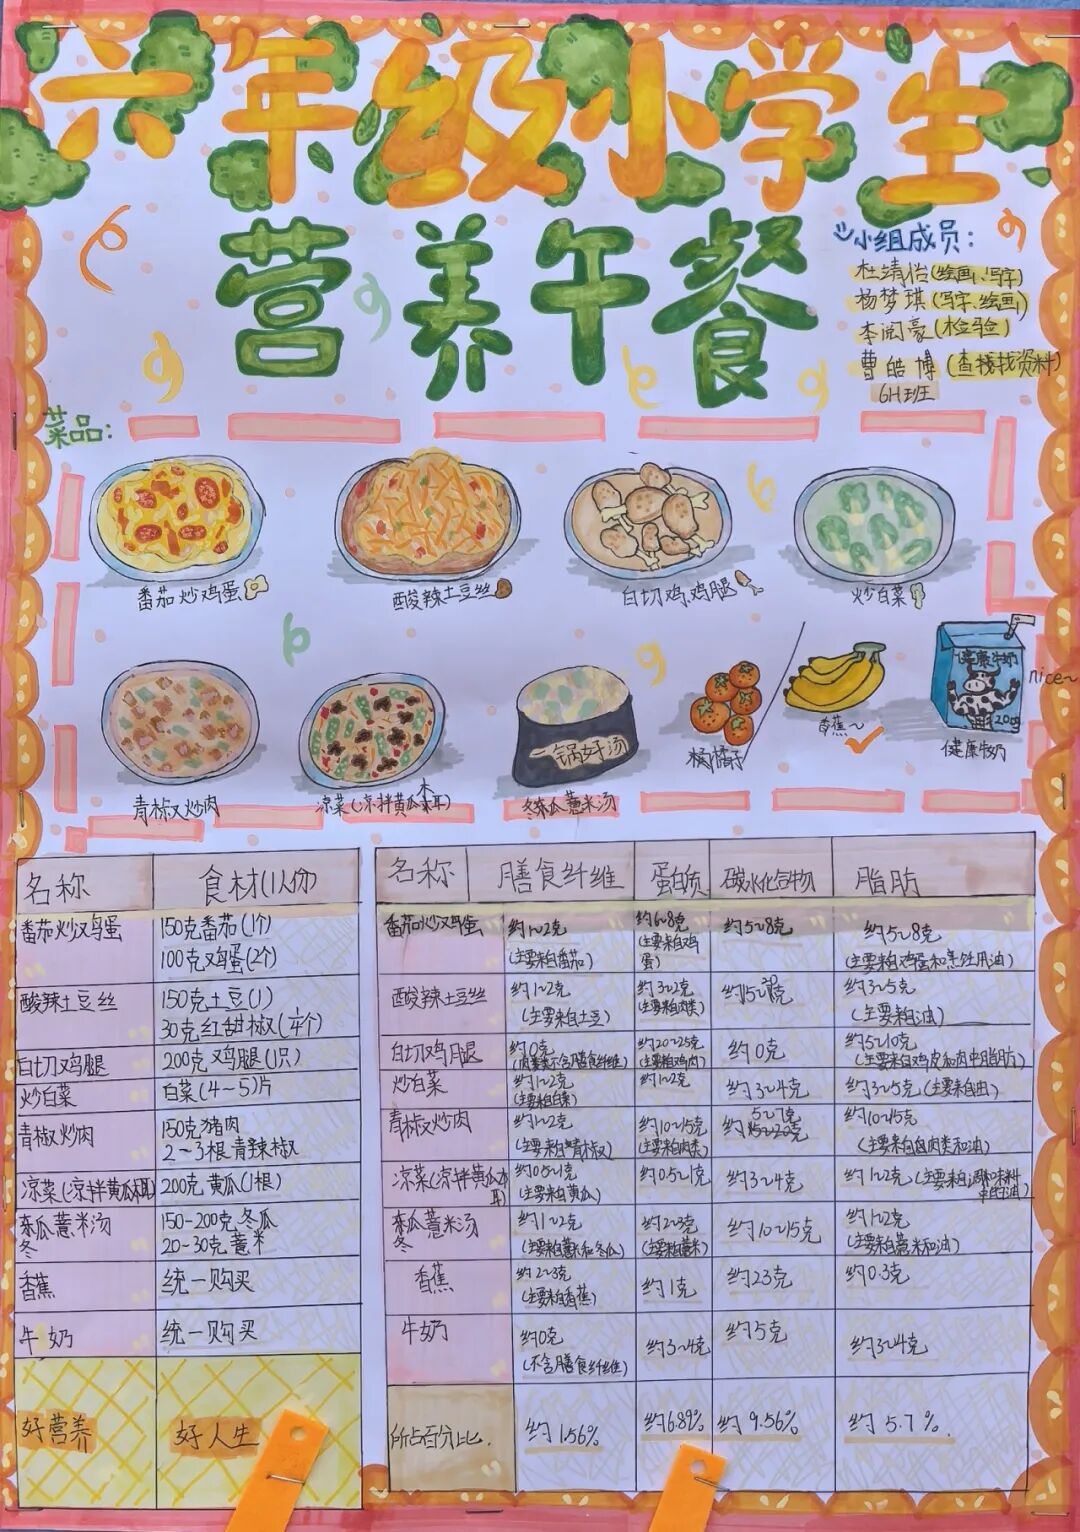 六年级小学生
营养午餐
小组成员:
杜靖怡(绘画、写字)
杨梦琪(写字、绘画)
李闻豪(检验)
曹皓博(查找找资料)
6H班
菜品:
番茄炒鸡蛋
酸辣土豆丝
白切鸡鸡腿
炒白菜
青椒炒肉
凉菜(凉拌黄瓜木耳)
一锅好汤
冬瓜薏米汤
香蕉~
健康牛奶
nice~
健康牛奶
名称 食材(1人份)
番茄炒鸡蛋 150克番茄(1个)
100克鸡蛋(2个)
酸辣土豆丝 150克土豆(1)
30克红甜椒
白切鸡腿 200克鸡腿(1只)
炒白菜 白菜(4~5)片
青椒炒肉 150克猪肉
2~3根青辣椒
凉菜(凉拌黄瓜木耳) 200克黄瓜(1根)
冬瓜薏米汤 150-200克冬瓜
20-30克薏米
香蕉 统一购买
牛奶 统一购买
好营养 好人生
名称 膳食纤维 蛋白质 碳水化合物 脂肪
番茄炒鸡蛋 约1~2克 约6~8克 约5~8克 约5~8克
(主要来自番茄) (主要来自鸡蛋) (主要来自鸡蛋和烹饪用油)
酸辣土豆丝 约1~2克 约3~5克
(主要来自土豆) (主要来自肉类) (主要来自油)
白切鸡腿 约0克 约20~25克 约0克 约5~10克
(肉类不含膳食纤维) (主要来自鸡皮和肉中脂肪)
炒白菜 约1~2克 约1~2克 约3~4克 约3~5克(主要来自油)
(主要来自白菜)
青椒炒肉 约1~2克 约10~15克 5~7克 约10~15克
(主要来自青椒) (主要来自肉类) (主要来自肉类和油)
凉菜(凉拌黄瓜木耳) 约0.5~1克 约0.5~1克 约3~4克 约1~2克
(主要来自黄瓜)
冬瓜薏米汤 约1~2克 约2~3克 约10~15克 约1~2克
(主要来自薏米和冬瓜) (主要来自薏米) (主要来自薏米和油)
香蕉 约2~3克 约1克 约23克 约0.3克
(主要来自香蕉)
牛奶 约0克 约3~4克 约5克 约3~4克
(不含膳食纤维)
所占百分比. 约1.56% 约6.89% 约9.56% 约5.7%.